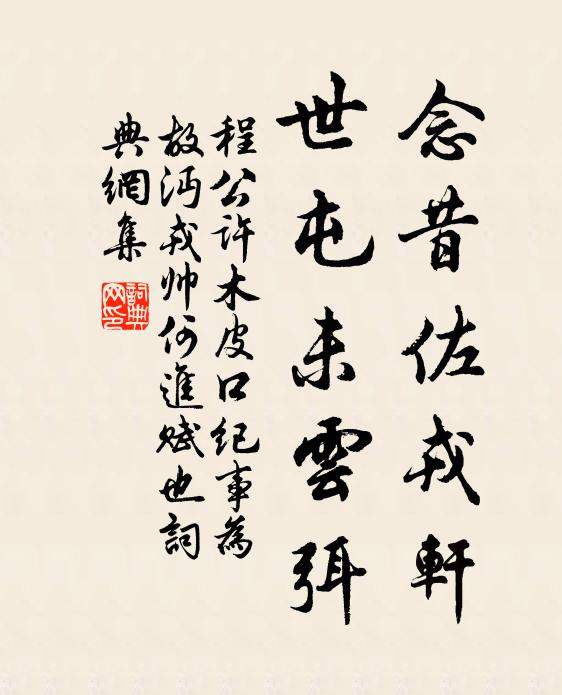 念昔佐戎軒
世屯未雲弭
程公許木皮口紀事為
故沔戎帥何進賦也詞
典網集
詞典
网印